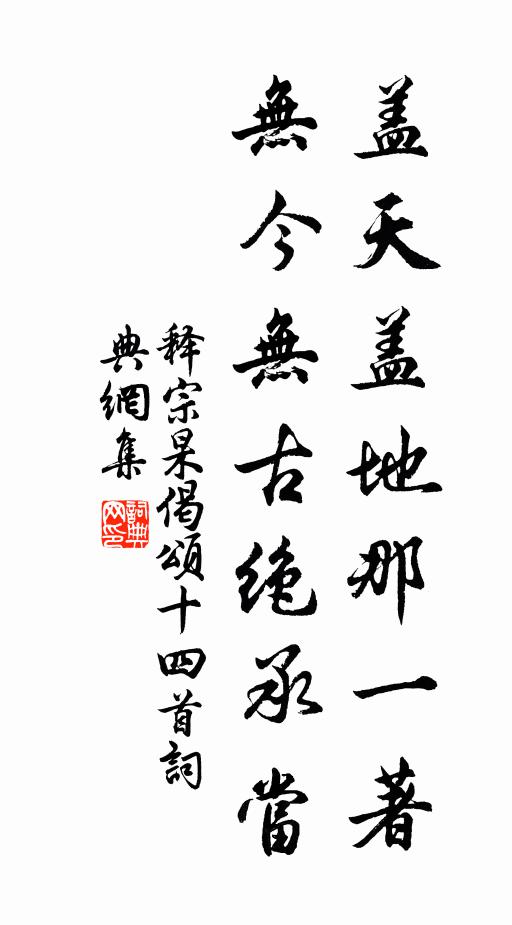 盖天盖地那一著
無今無古絶承當
释宗杲偈頌十四首詞
典網集
詞典
网印